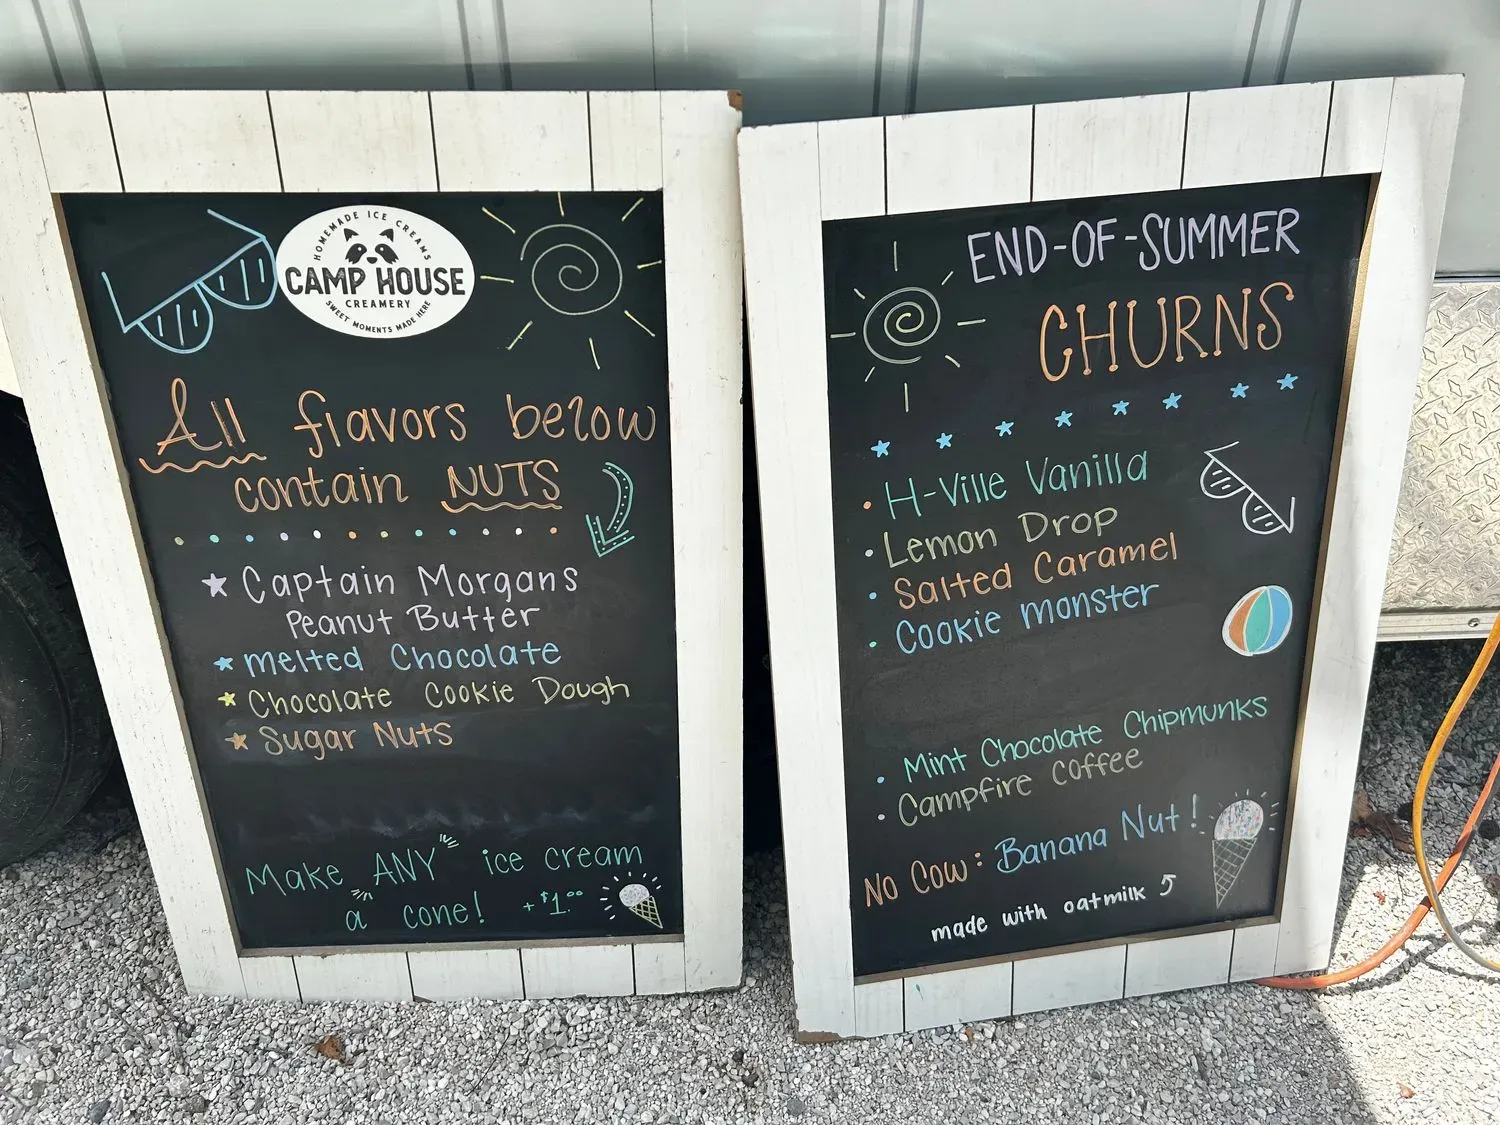 HOMEMADE ICE CREAMS
CAMP HOUSE
CREAMERY
SWEET MOMENTS MADE HERE
All flavors below
contain NUTS
Captain Morgans
Peanut Butter
melted Chocolate
Chocolate Cookie Dough
Sugar Nuts
Make ANY ice cream
a cone! +$1.00
END-OF-SUMMER
CHURNS
• H-Ville Vanilla
• Lemon Drop
• Salted Caramel
• Cookie monster
• Mint Chocolate Chipmunks
• Campfire Coffee
No Cow: Banana Nut!
made with oatmilk 5